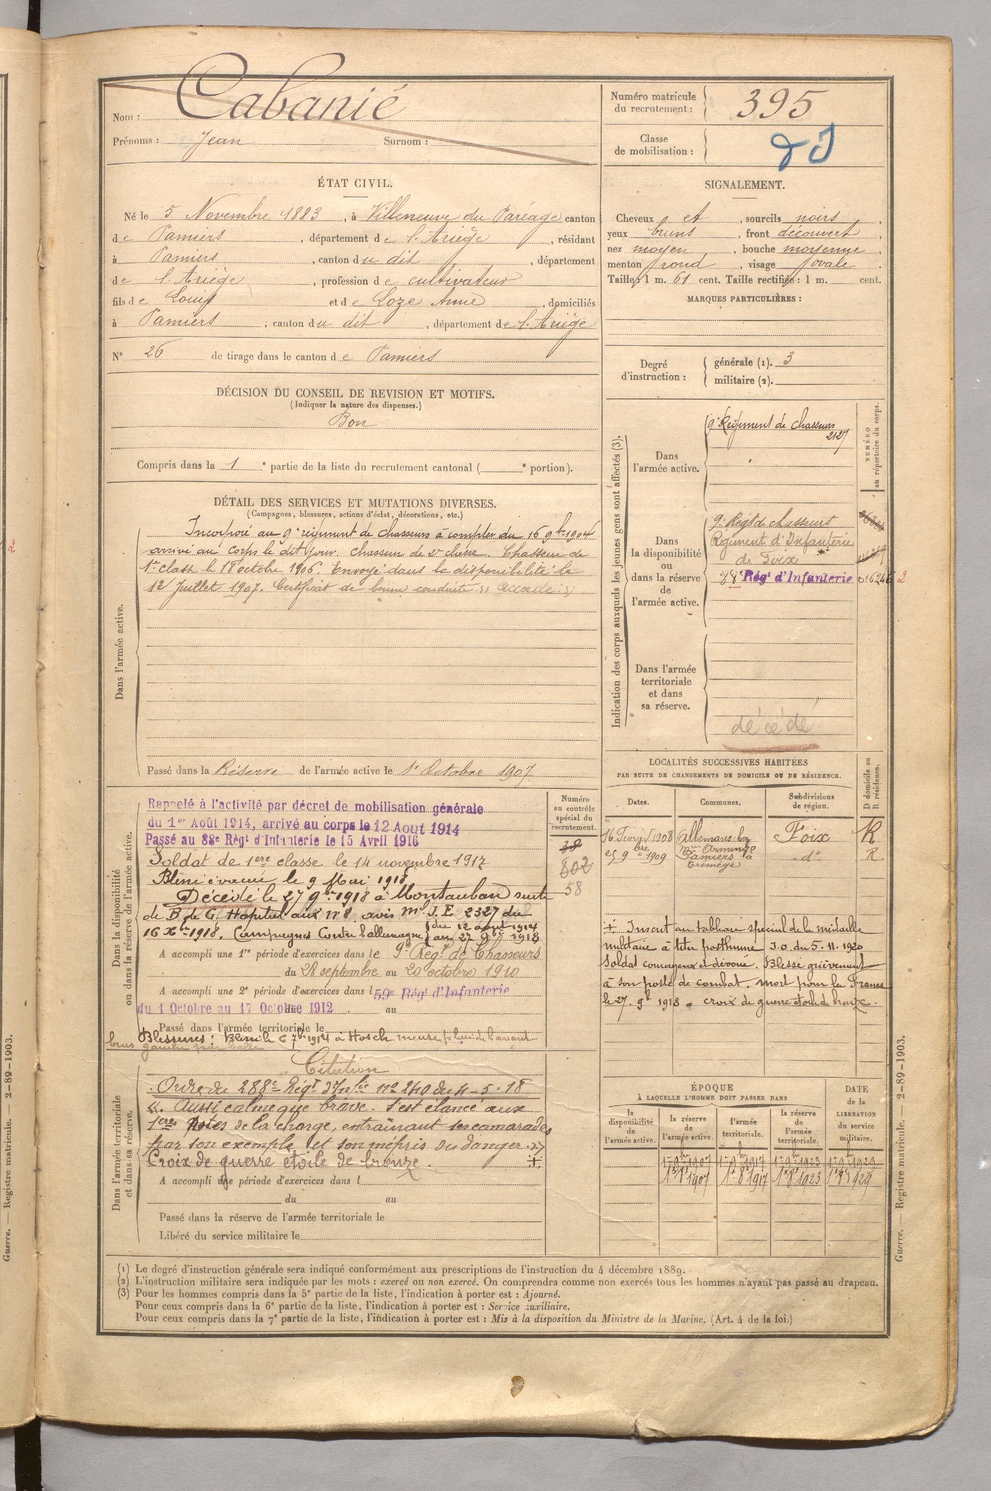 Nom : Cabanié
Prénoms : Jean Surnom :
Numéro matricule du recrutement : 395
Classe de mobilisation :
ÉTAT CIVIL.
Né le 5 Novembre 1883, à Villeneuve du Paréage canton
de Pamiers, département de l'Ariège, résidant
à Pamiers, canton du dit, département
de l'Ariège, profession de cultivateur
fils de Louis et de Loze Anne, domiciliés
à Pamiers, canton du dit, département de l'Ariège
N° 26 de tirage dans le canton de Pamiers
DÉCISION DU CONSEIL DE REVISION ET MOTIFS.
(Indiquer la nature des dispenses.)
Bon
Compris dans la 1e partie de la liste du recrutement cantonal ( e portion).
SIGNALEMENT.
Cheveux et, sourcils noirs,
yeux bruns, front découvert,
nez moyen, bouche moyenne,
menton rond, visage ovale.
Taille : 1 m. 61 cent. Taille rectifiée : 1 m. cent.
MARQUES PARTICULIÈRES :
Degré d'instruction : générale (1). 3
militaire (2).
DÉTAIL DES SERVICES ET MUTATIONS DIVERSES.
(Campagnes, blessures, actions d'éclat, décorations, etc.)
Dans l'armée active.
Incorporé au 9e régiment de chasseurs à compter du 16 9bre 1904
arrivé au corps le dit jour. Chasseur de 2e classe. Chasseur de
1re classe le 18 octobre 1906. Envoyé dans la disponibilité le
12 Juillet 1907. Certificat de bonne conduite "accordé"
Passé dans la Réserve de l'armée active le 1er Octobre 1907
Indication des corps auxquels les jeunes gens sont affectés (3).
NUMÉRO au répertoire du corps.
Dans l'armée active.
9e Régiment de chasseurs
2127
Dans la disponibilité ou dans la réserve de l'armée active.
9e Régt de chasseurs
Régiment d'Infanterie
de Foix
88e Rég' d'Infanterie 016246
Dans l'armée territoriale et dans sa réserve.
décédé
Dans la disponibilité ou dans la réserve de l'armée active.
Rappelé à l'activité par décret de mobilisation générale
du 1er Août 1914, arrivé au corps le 12 Aout 1914
Passé au 88e Régt d'Infanterie le 15 Avril 1916
Soldat de 1ere classe le 14 novembre 1917
Blessé évacué le 9 Mai 1918
Décédé le 27 9bre 1918 à Montauban suite
de B. de G. Hôpital aux n° 8, avis Ml J.E. 2327 du
16 Xbre 1918. Campagnes Contre l'allemagne du 12 aout 1914
au 27 9bre 1918
A accompli une 1re période d'exercices dans le 9e Rég. de Chasseurs
du 28 septembre au 20 octobre 1910
A accompli une 2e période d'exercices dans l 59e Rég' d'Infanterie
du 1 Octobre au 17 Octobre 1912 au
Passé dans l'armée territoriale le
Numéro au contrôle spécial du recrutement.
802
58
LOCALITÉS SUCCESSIVES HABITÉES
PAR SUITE DE CHANGEMENTS DE DOMICILE OU DE RÉSIDENCE.
D domicile ou R résidence.
Dates. Communes. Subdivisions de région.
Foix R
25 9bre 1909 Pamiers d° R
+ Inscrit au tableau spécial de la médaille
militaire à titre posthume J.O. du 5.11.1920
Soldat courageux et dévoué. Blessé grièvement
à son poste de combat. mort pour la France
le 27. 9bre 1918. croix de guerre étoile de bronze.
Dans l'armée territoriale et dans sa réserve.
Citation
Ordre du 288e Régt d'Infrie n° 240 du 4-5-18
"Aussi calme que brave. S'est élancé aux
1eres notes de la charge, entrainant ses camarades
par son exemple et son mépris du danger."
Croix de guerre étoile de bronze. +
A accompli une période d'exercices dans l
du au
Passé dans la réserve de l'armée territoriale le
Libéré du service militaire le
ÉPOQUE
À LAQUELLE L'HOMME DOIT PASSER DANS
la disponibilité de l'armée active.
la réserve de l'armée active.
l'armée territoriale.
la réserve de l'armée territoriale.
DATE de la LIBÉRATION du service militaire.
(1) Le degré d'instruction générale sera indiqué conformément aux prescriptions de l'instruction du 4 décembre 1889.
(2) L'instruction militaire sera indiquée par les mots : exercé ou non exercé. On comprendra comme non exercés tous les hommes n'ayant pas passé au drapeau.
(3) Pour les hommes compris dans la 5e partie de la liste, l'indication à porter est : Ajourné.
Pour ceux compris dans la 6e partie de la liste, l'indication à porter est : Service auxiliaire.
Pour ceux compris dans la 7e partie de la liste, l'indication à porter est : Mis à la disposition du Ministre de la Marine. (Art. 4 de la loi.)
Guerre. — Registre matricule. — 2-89-1903.